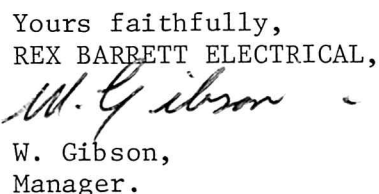 Yours faithfully,
REX BARRETT ELECTRICAL,
W. Gibson
W. Gibson,
Manager.